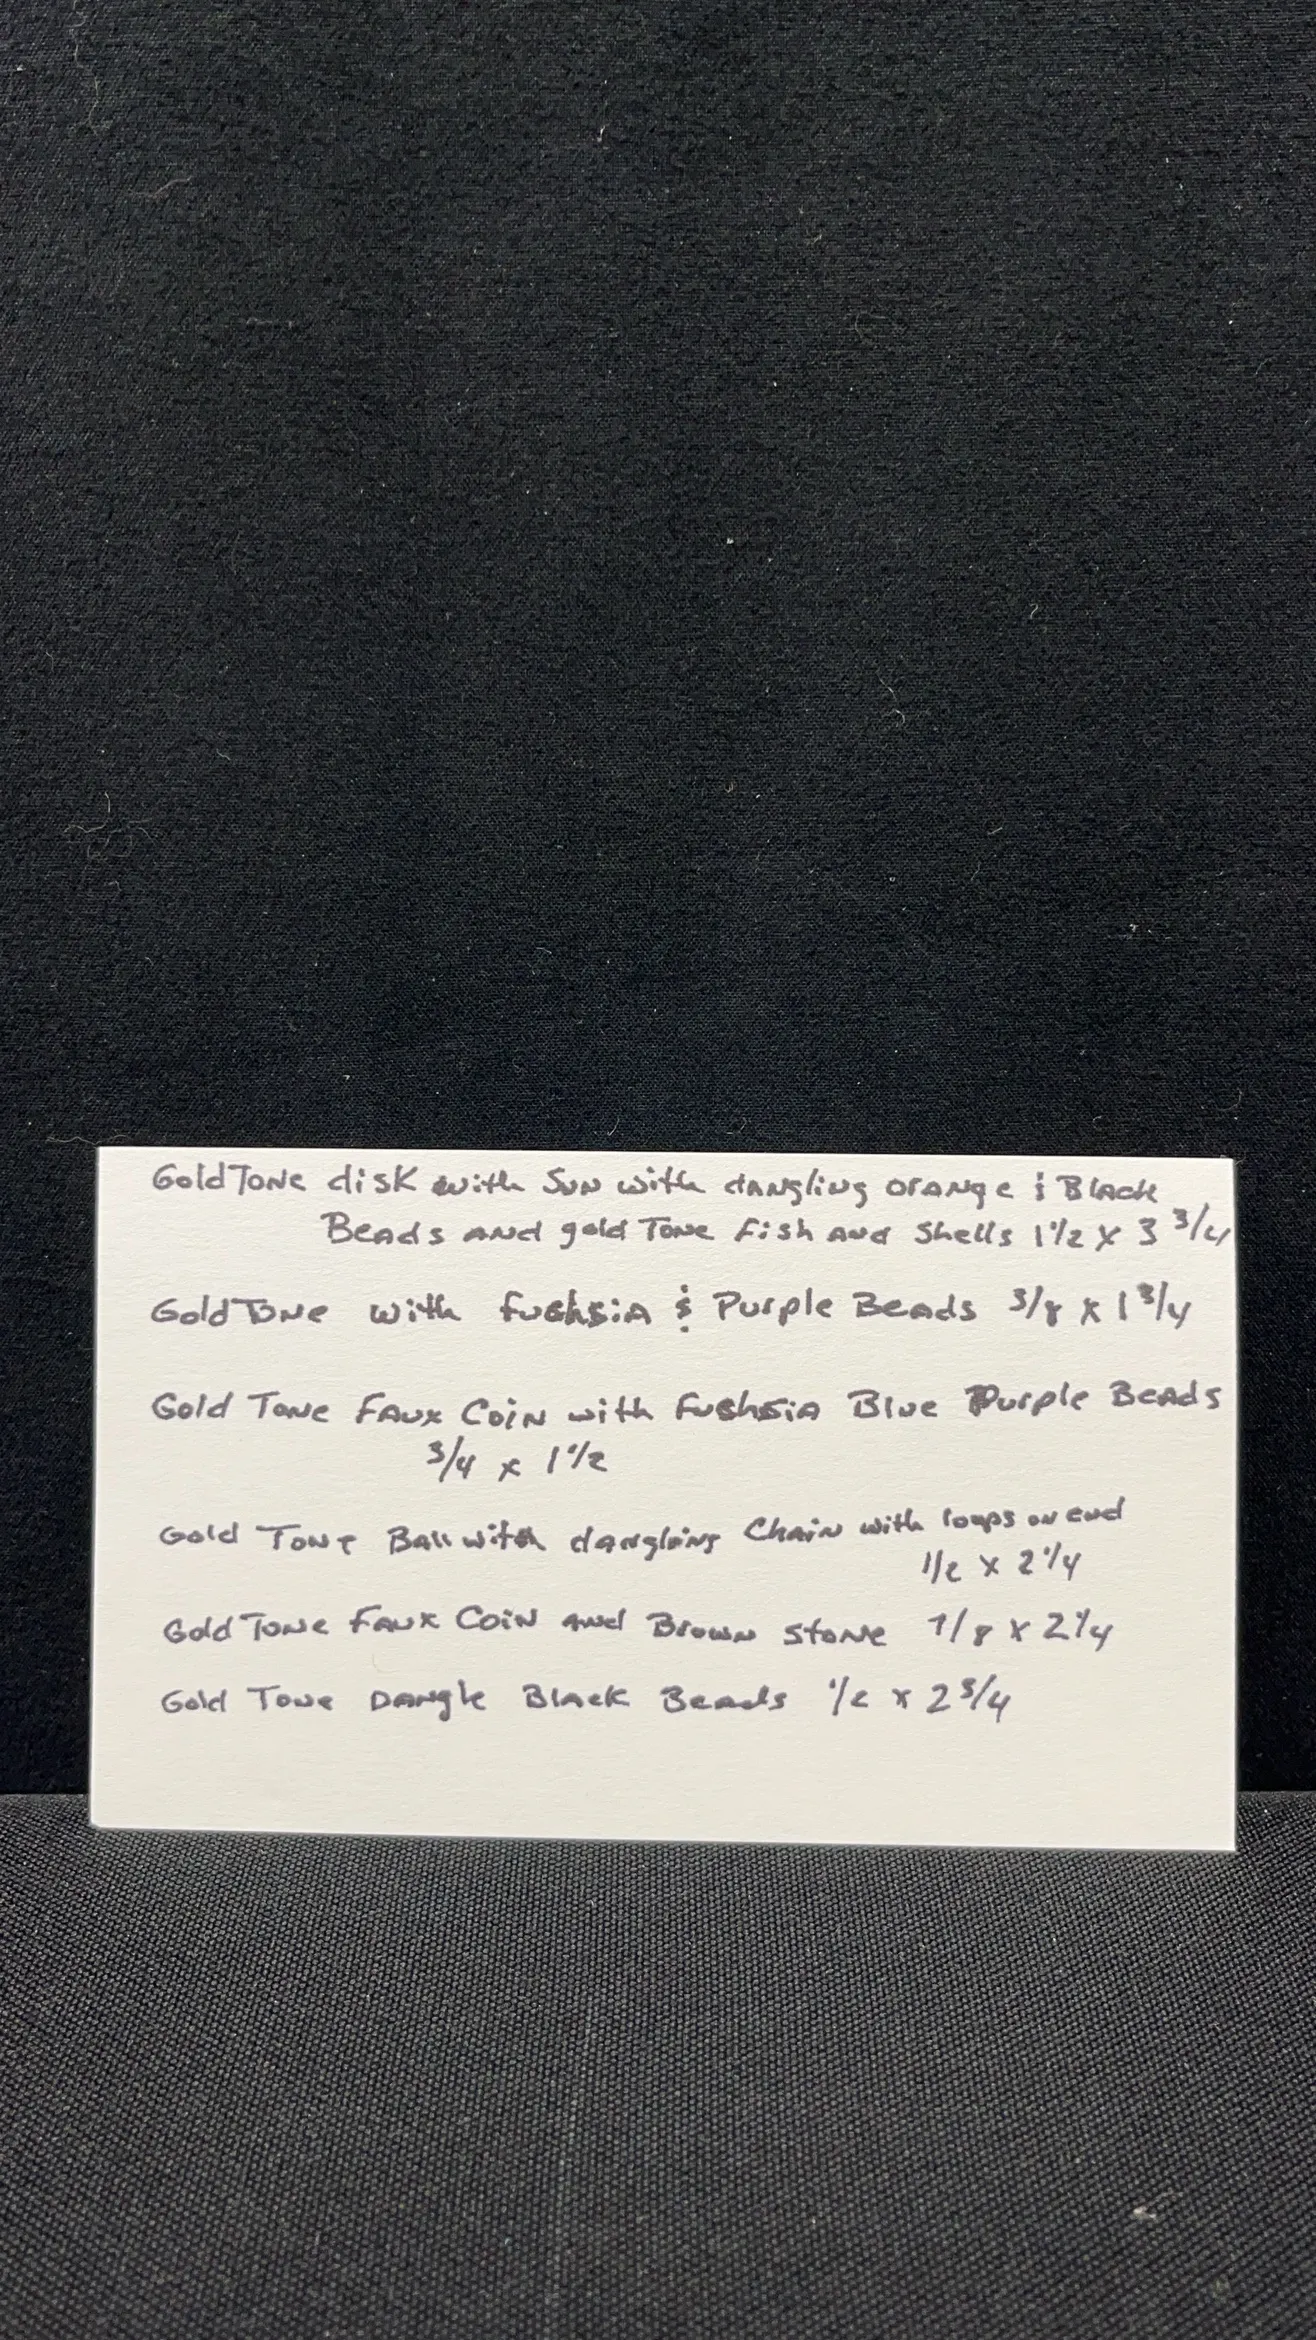 Gold Tone disk with Sun with dangling orange & Black
Beads and gold Tone Fish and Shells 1 1/2 x 3 3/4
Gold Tone with fuchsia & Purple Beads 3/8 x 1 3/4
Gold Tone Faux Coin with Fushsia Blue Purple Beads
3/4 x 1 1/2
Gold Tone Ball with dangling Chain with loops on end
1/2 x 2 1/4
Gold Tone Faux Coin and Brown Stone 7/8 x 2 1/4
Gold Tone Dangle Black Beads 1/2 x 2 3/4